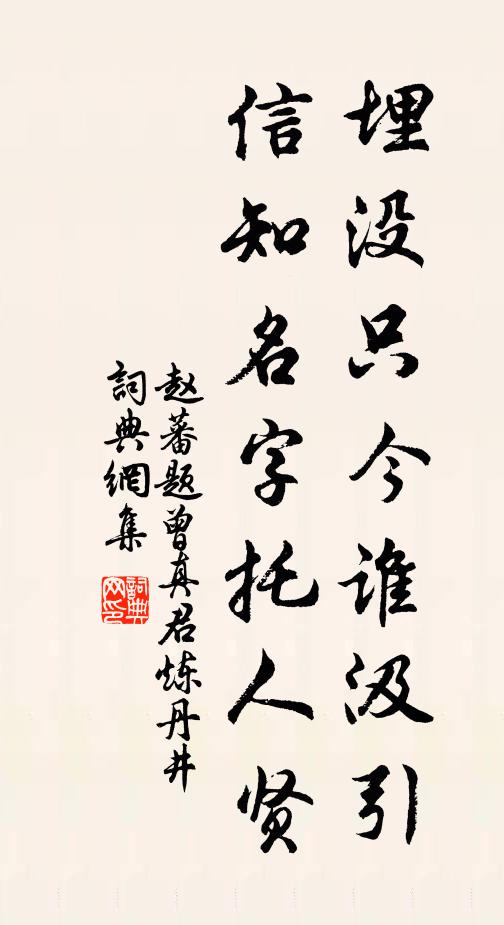 埋没只今谁汲引
信知名字托人贤
赵蕃题曾真君炼丹井
詞典網集
詞典
网印